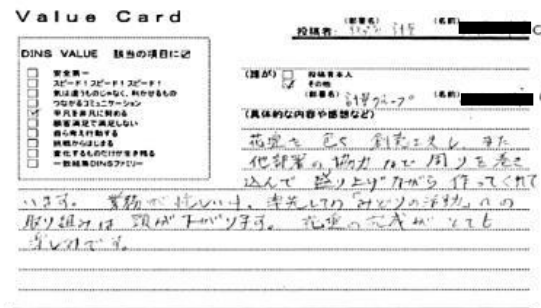 Value Card
DINS VALUE 該当の項目に☑
安全第一
スピード！スピード！スピード！
気は遣うものじゃなく、利かせるもの
つながるコミュニケーション
平凡を非凡に努める
顧客満足で満足しない
自ら考え行動する
挑戦からはじまる
変化するものだけが生き残る
一致結束DINSファミリー
投稿者： (部署名) (名前)
(誰が) 投稿者本人
その他
(部署名) 計量グループ (名前)
(具体的な内容や感想など)
花壇を 創意工夫し、また
他部署の協力 周りを巻き
込んで 盛り上げながら 作ってくれて
います。 業務が忙しい中、率先しての「みどりの活動」への
取り組みは 頭が下がります。 花壇の完成が とても
楽しみです。